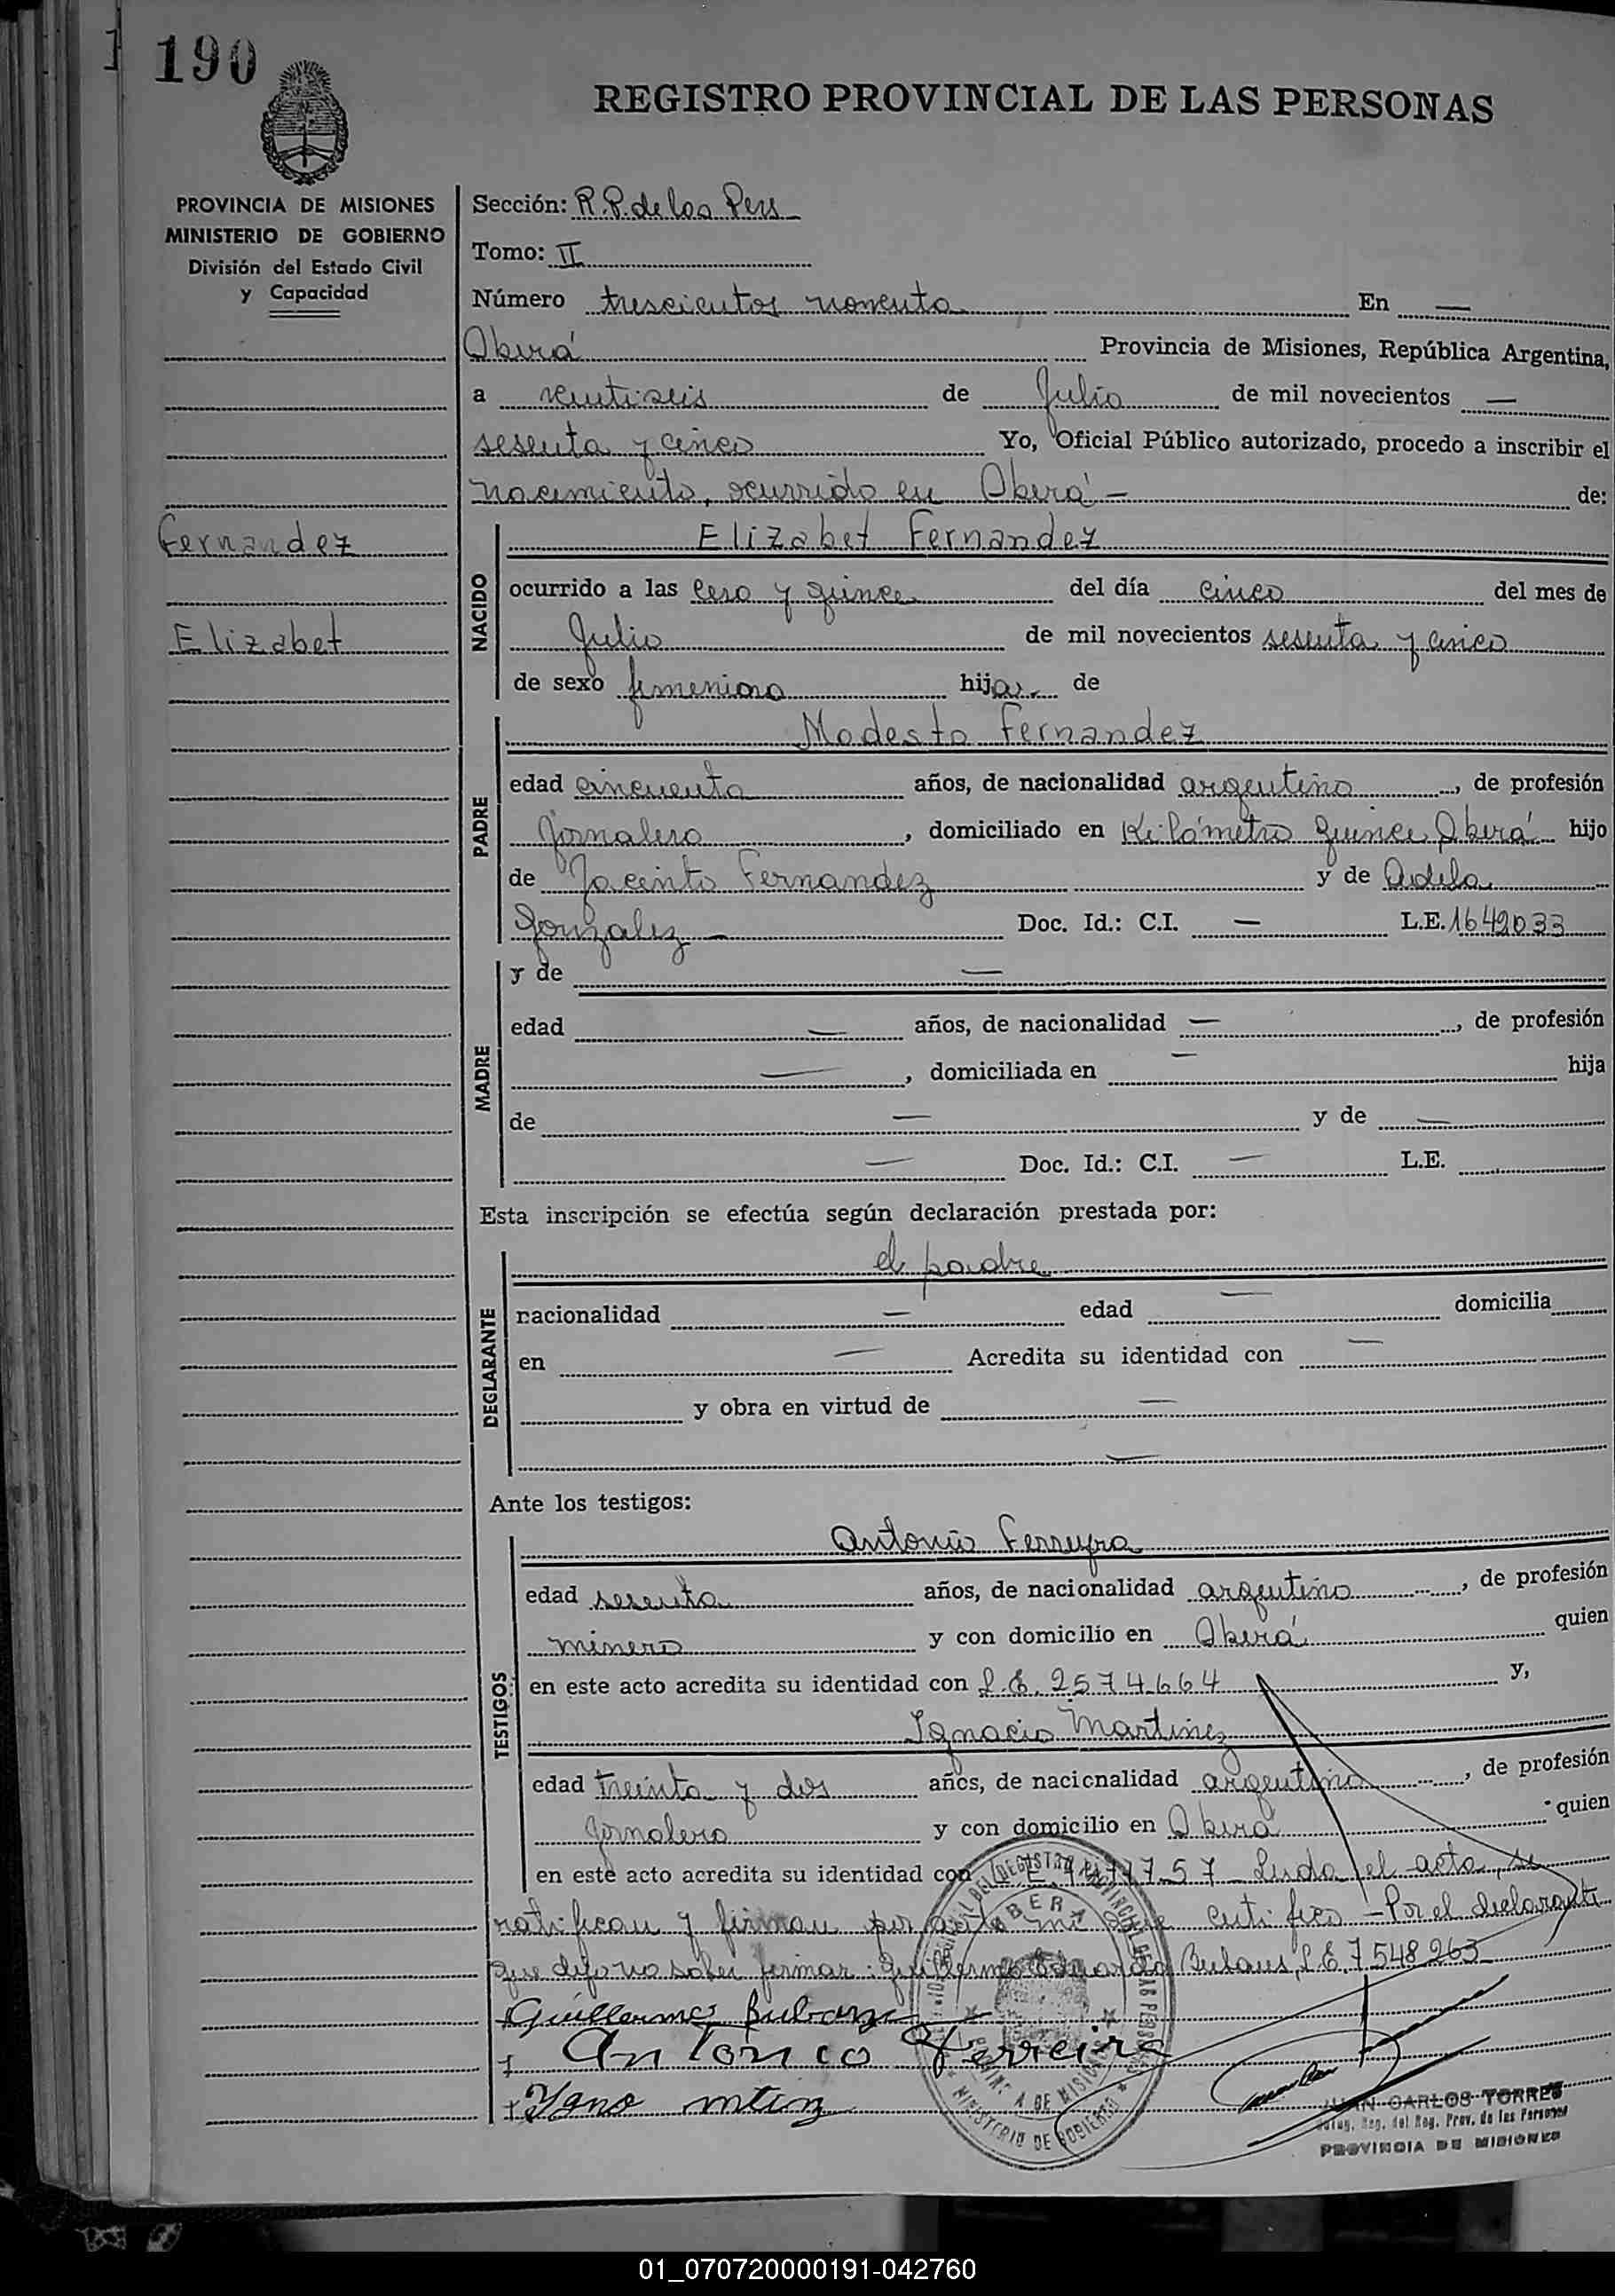 190
REGISTRO PROVINCIAL DE LAS PERSONAS
PROVINCIA DE MISIONES
MINISTERIO DE GOBIERNO
División del Estado Civil
y Capacidad
Sección: R.P. de las Pers
Tomo: II
Número trescientos noventa En —
Oberá Provincia de Misiones, República Argentina,
a veintiseis de Julio de mil novecientos —
sesenta y cinco Yo, Oficial Público autorizado, procedo a inscribir el
nacimiento, ocurrido en Oberá — de:
Fernandez
Elizabet
NACIDO
Elizabet Fernandez
ocurrido a las cero y quince del día cinco del mes de
Julio de mil novecientos sesenta y cinco
de sexo femenino hija de
PADRE
Modesto Fernandez
edad cincuenta años, de nacionalidad argentino, de profesión
Jornalero, domiciliado en Kilómetro quince Oberá hijo
de Jacinto Fernandez y de Adela
Gonzalez — Doc. Id.: C.I. — L.E. 1642033
MADRE
y de —
edad — años, de nacionalidad —, de profesión
—, domiciliada en — hija
de — y de —
— Doc. Id.: C.I. — L.E.
Esta inscripción se efectúa según declaración prestada por:
DECLARANTE
el padre
nacionalidad — edad — domicilia
en — Acredita su identidad con —
y obra en virtud de —
—
Ante los testigos:
TESTIGOS
Antonio Ferreyra
edad sesenta años, de nacionalidad argentino, de profesión
minero y con domicilio en Oberá quien
en este acto acredita su identidad con L.E. 2574664 y,
Ignacio Martinez
edad treinta y dos años, de nacionalidad argentino, de profesión
Jornalero y con domicilio en Oberá quien
en este acto acredita su identidad con L.E. Leida el acta, se
ratifican y firman por ante mi que certifico — Por el declarante
que dijo no saber firmar: Guillermo Eduardo L.E. 7548263
Guillermo
Antonio Ferreira
Igno mtinz
OBERA
MINISTERIO DE GOBIERNO
JUAN CARLOS TORRES
Reg. del Reg. Prov. de las Personas
PROVINCIA DE MISIONES
01_070720000191-042760